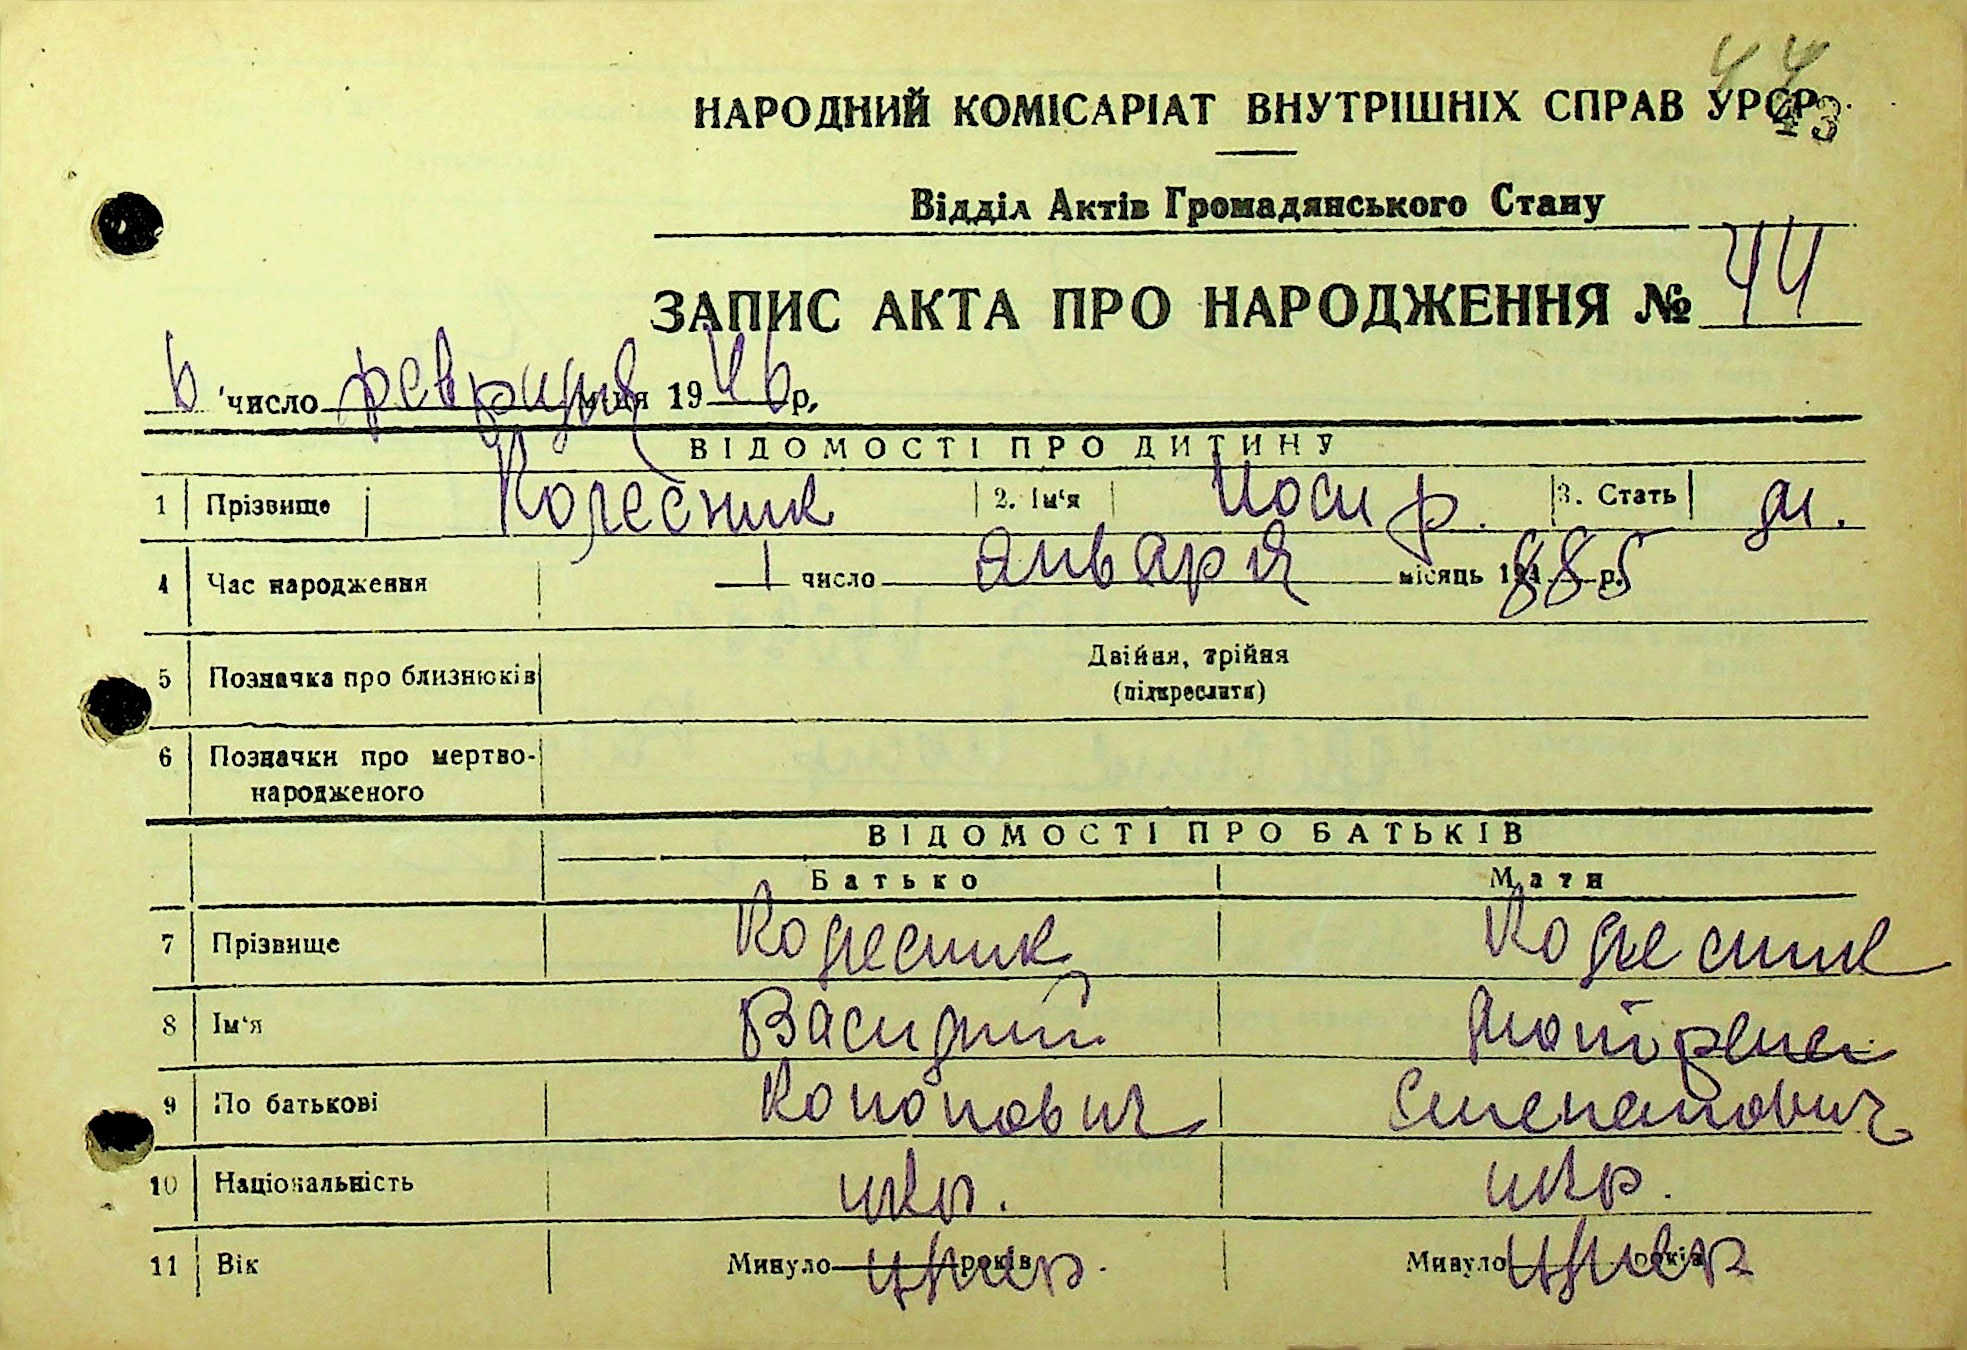 44
43
НАРОДНИЙ КОМІСАРІАТ ВНУТРІШНІХ СПРАВ УРСР.
Відділ Актів Громадянського Стану
ЗАПИС АКТА ПРО НАРОДЖЕННЯ № 44
6 число февраля м-ця 1946 р.
ВІДОМОСТІ ПРО ДИТИНУ
1 Прізвище Колесник 2. Ім'я Иосиф. 3. Стать м.
4 Час народження 1 число января місяць 1885 р.
5 Позначка про близнюків Двійня, трійня
(підкреслити)
6 Позначки про мертво-
народженого
ВІДОМОСТІ ПРО БАТЬКІВ
Батько Мати
7 Прізвище Колесник Колесник
8 Ім'я Василий Мотрена
9 По батькові Кононович Степанович
10 Національність укр. укр.
11 Вік Минуло умер років. Минуло умер років